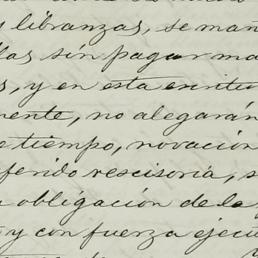 y libranzas, se man
las sin pagar ma
s, y en esta escritu
mente, no alegarán
e tiempo, novación
eferido rescisoria, s
a obligación de la
y con fuerza ejecu